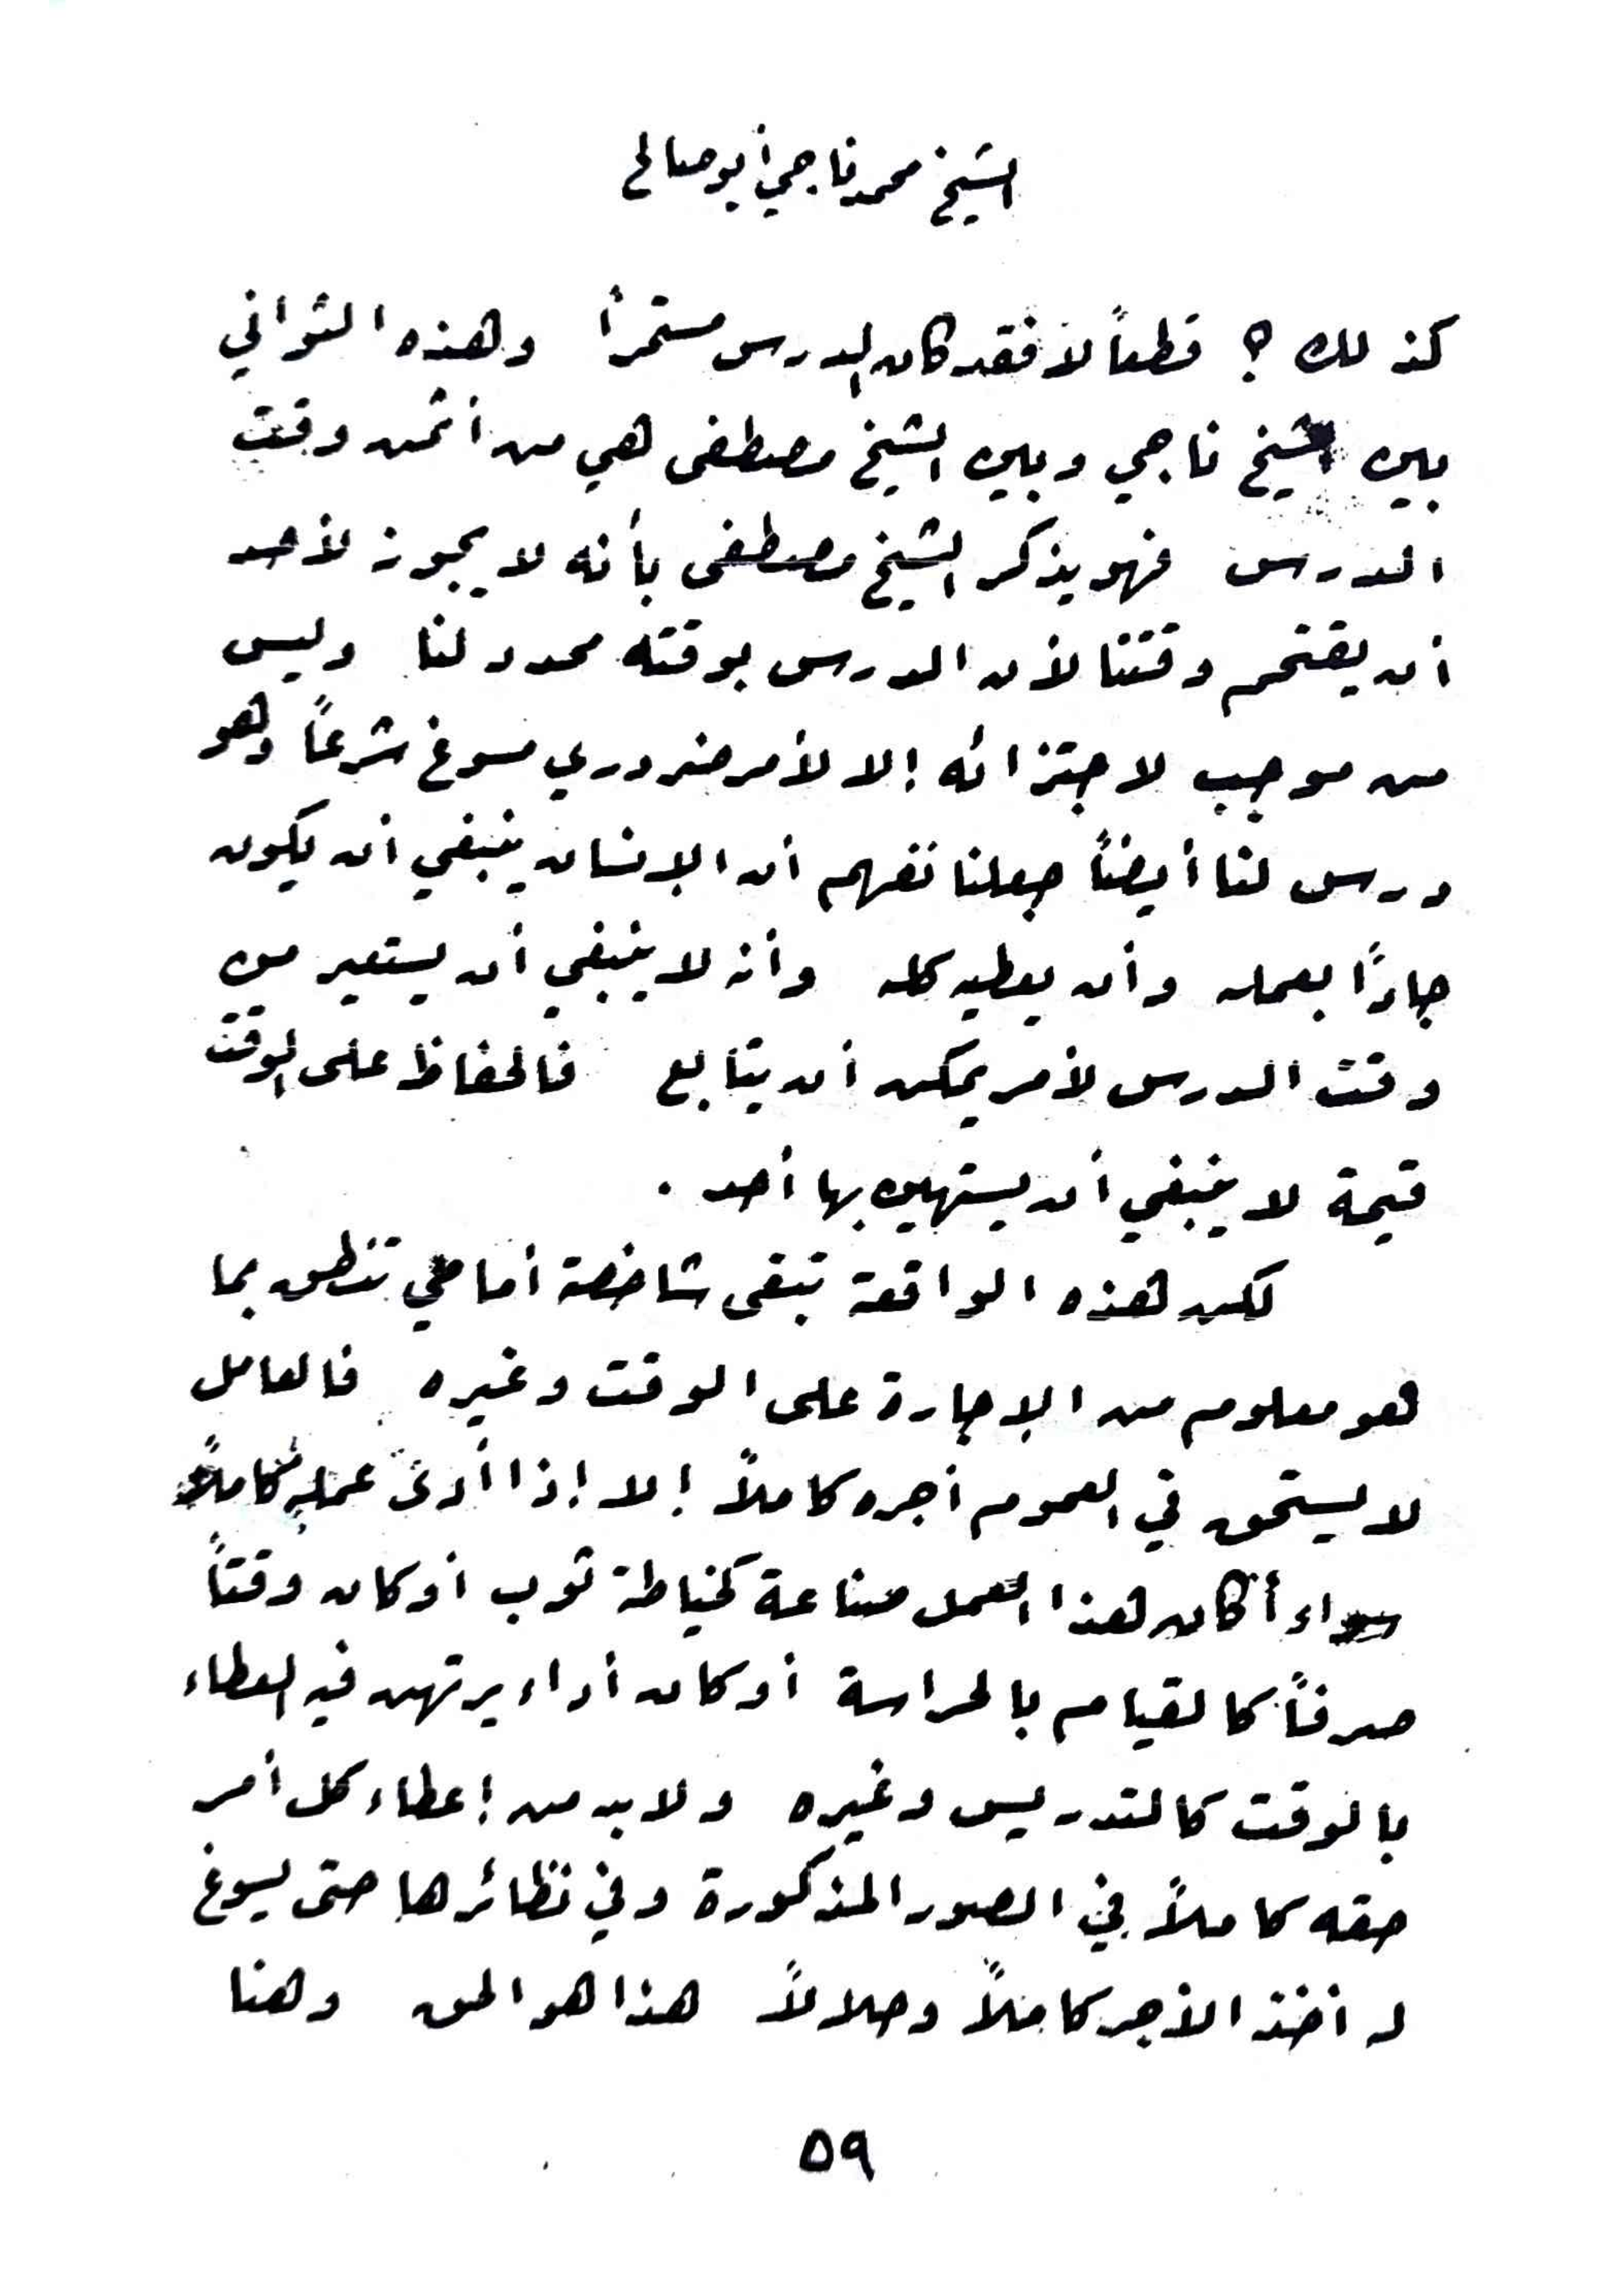 الشيخ محمد ناجي أبو صالح
كذلك ؟ قطعاً لا فقد كان الدرس مستمراً وهذه الثواني
بين الشيخ ناجي وبين الشيخ مصطفى هي من أثمن وقت
الدرس فهو يذكر الشيخ مصطفى بأنه لا يجوز لأحد
أن يقتحم وقتنا لأن الدرس بوقته محدد لنا وليس
من موجب لاجتزائه إلا لأمر ضروري مسوغ شرعاً وهو
درس لنا أيضاً جعلنا نفهم أن الإنسان ينبغي أن يكون
جاداً بعمله وأن يعطيه كله وأنه لا ينبغي أن يستعير من
وقت الدرس لأمر يمكن أن يتابع فالحفاظ على الوقت
قيمة لا ينبغي أن يستهين بها أحد .
لكن هذه الواقعة تبقى شاخصة أمامي تنطق بما
هو معلوم من الإجارة على الوقت وغيره فالعامل
لا يستحق في العموم أجره كاملاً إلا إذا أدى عمله كاملاً
سواء أكان هذا العمل صناعة كخياطة ثوب أو كان وقتاً
صرفاً كالقيام بالحراسة أو كان أداء يرتهن فيه العطاء
بالوقت كالتدريس وغيره ولا بد من إعطاء كل أمر
حقه كاملاً في الصور المذكورة وفي نظائرها حتى يسوغ
له أخذ الأجر كاملاً وحلالاً هذا هو الحق وهنا
٥٩